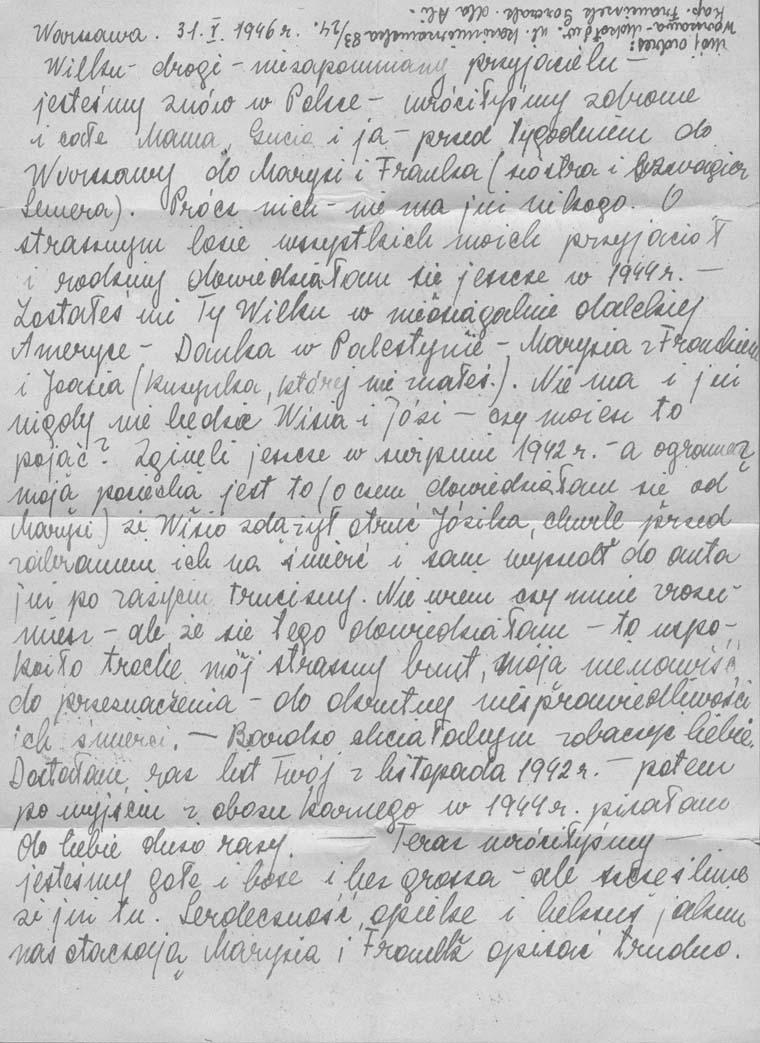 Warszawa. 31.V.1946 r.
Mój adres:
Warszawa-Mokotów. ul. Kazimierzowska 83/24.
Kap. Franciszek dla Ali.
Wilku- drogi- niezapomniany przyjacielu-
jesteśmy znów w Polsce- wróciłyśmy zdrowe
i całe Mama, Gucia i ja- przed tygodniem do
Warszawy do Marysi i Franka (siostra i szwagier
Lemera). Prócz nich- nie ma już nikogo. O
strasznym losie wszystkich moich przyjaciół
i rodziny dowiedziałam się jeszcze w 1944 r. -
Zostałeś mi Ty Wilku w nieosiągalnie dalekiej
Ameryce- Danka w Palestynie- Marysia z Frankiem
i Joasia (kuzynka, której nie znałeś.). Nie ma i już
nigdy nie będzie Wisia i Józi- czy możesz to
pojąć? Zginęli jeszcze w sierpniu 1942 r. - a ogromną
moją pociechą jest to (o czem dowiedziałam się od
Marysi) że Wisio zdążył otruć Józika, chwilę przed
zabraniem ich na śmierć i sam wyszedł do auta
już po zażyciu trucizny. Nie wiem czy mnie zrozu-
miesz- ale że się tego dowiedziałam- to uspo-
koiło trochę mój straszny bunt, moją nienawiść
do przeznaczenia- do okrutnej niesprawiedliwości
ich śmierci. - Bardzo chciałabym zobaczyć Ciebie.
Dostałam raz list Twój z listopada 1942 r. - potem
po wyjściu z obozu karnego w 1944 r. pisałam
do Ciebie dużo razy. - Teraz wróciłyśmy -
jesteśmy gołe i bose i bez grosza- ale szczęśliwe
że już tu. Serdeczność, opiekę i
nas otaczają Marysia i Franek opisać trudno.